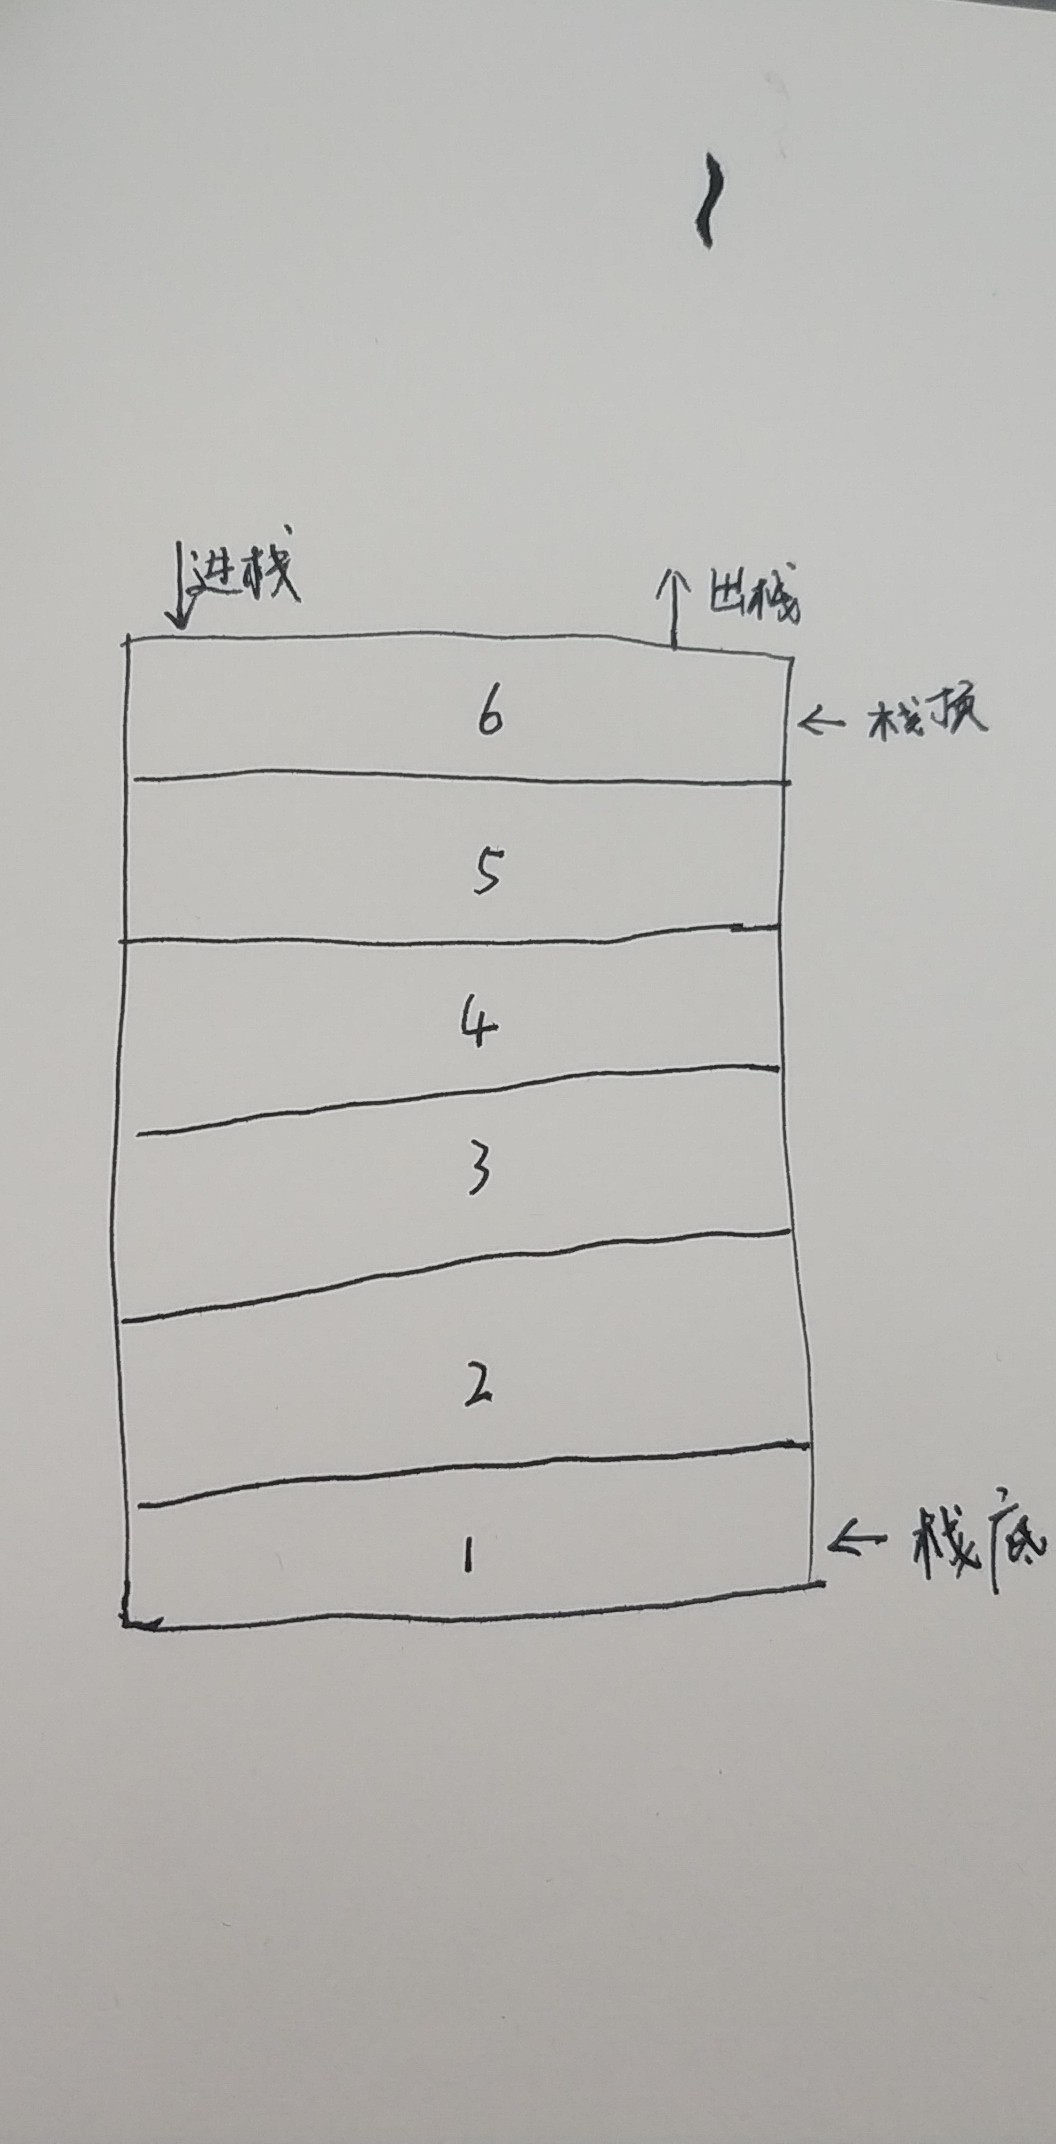 ↓进栈 ↑出栈
6 ←栈顶
5
4
3
2
1 ←栈底